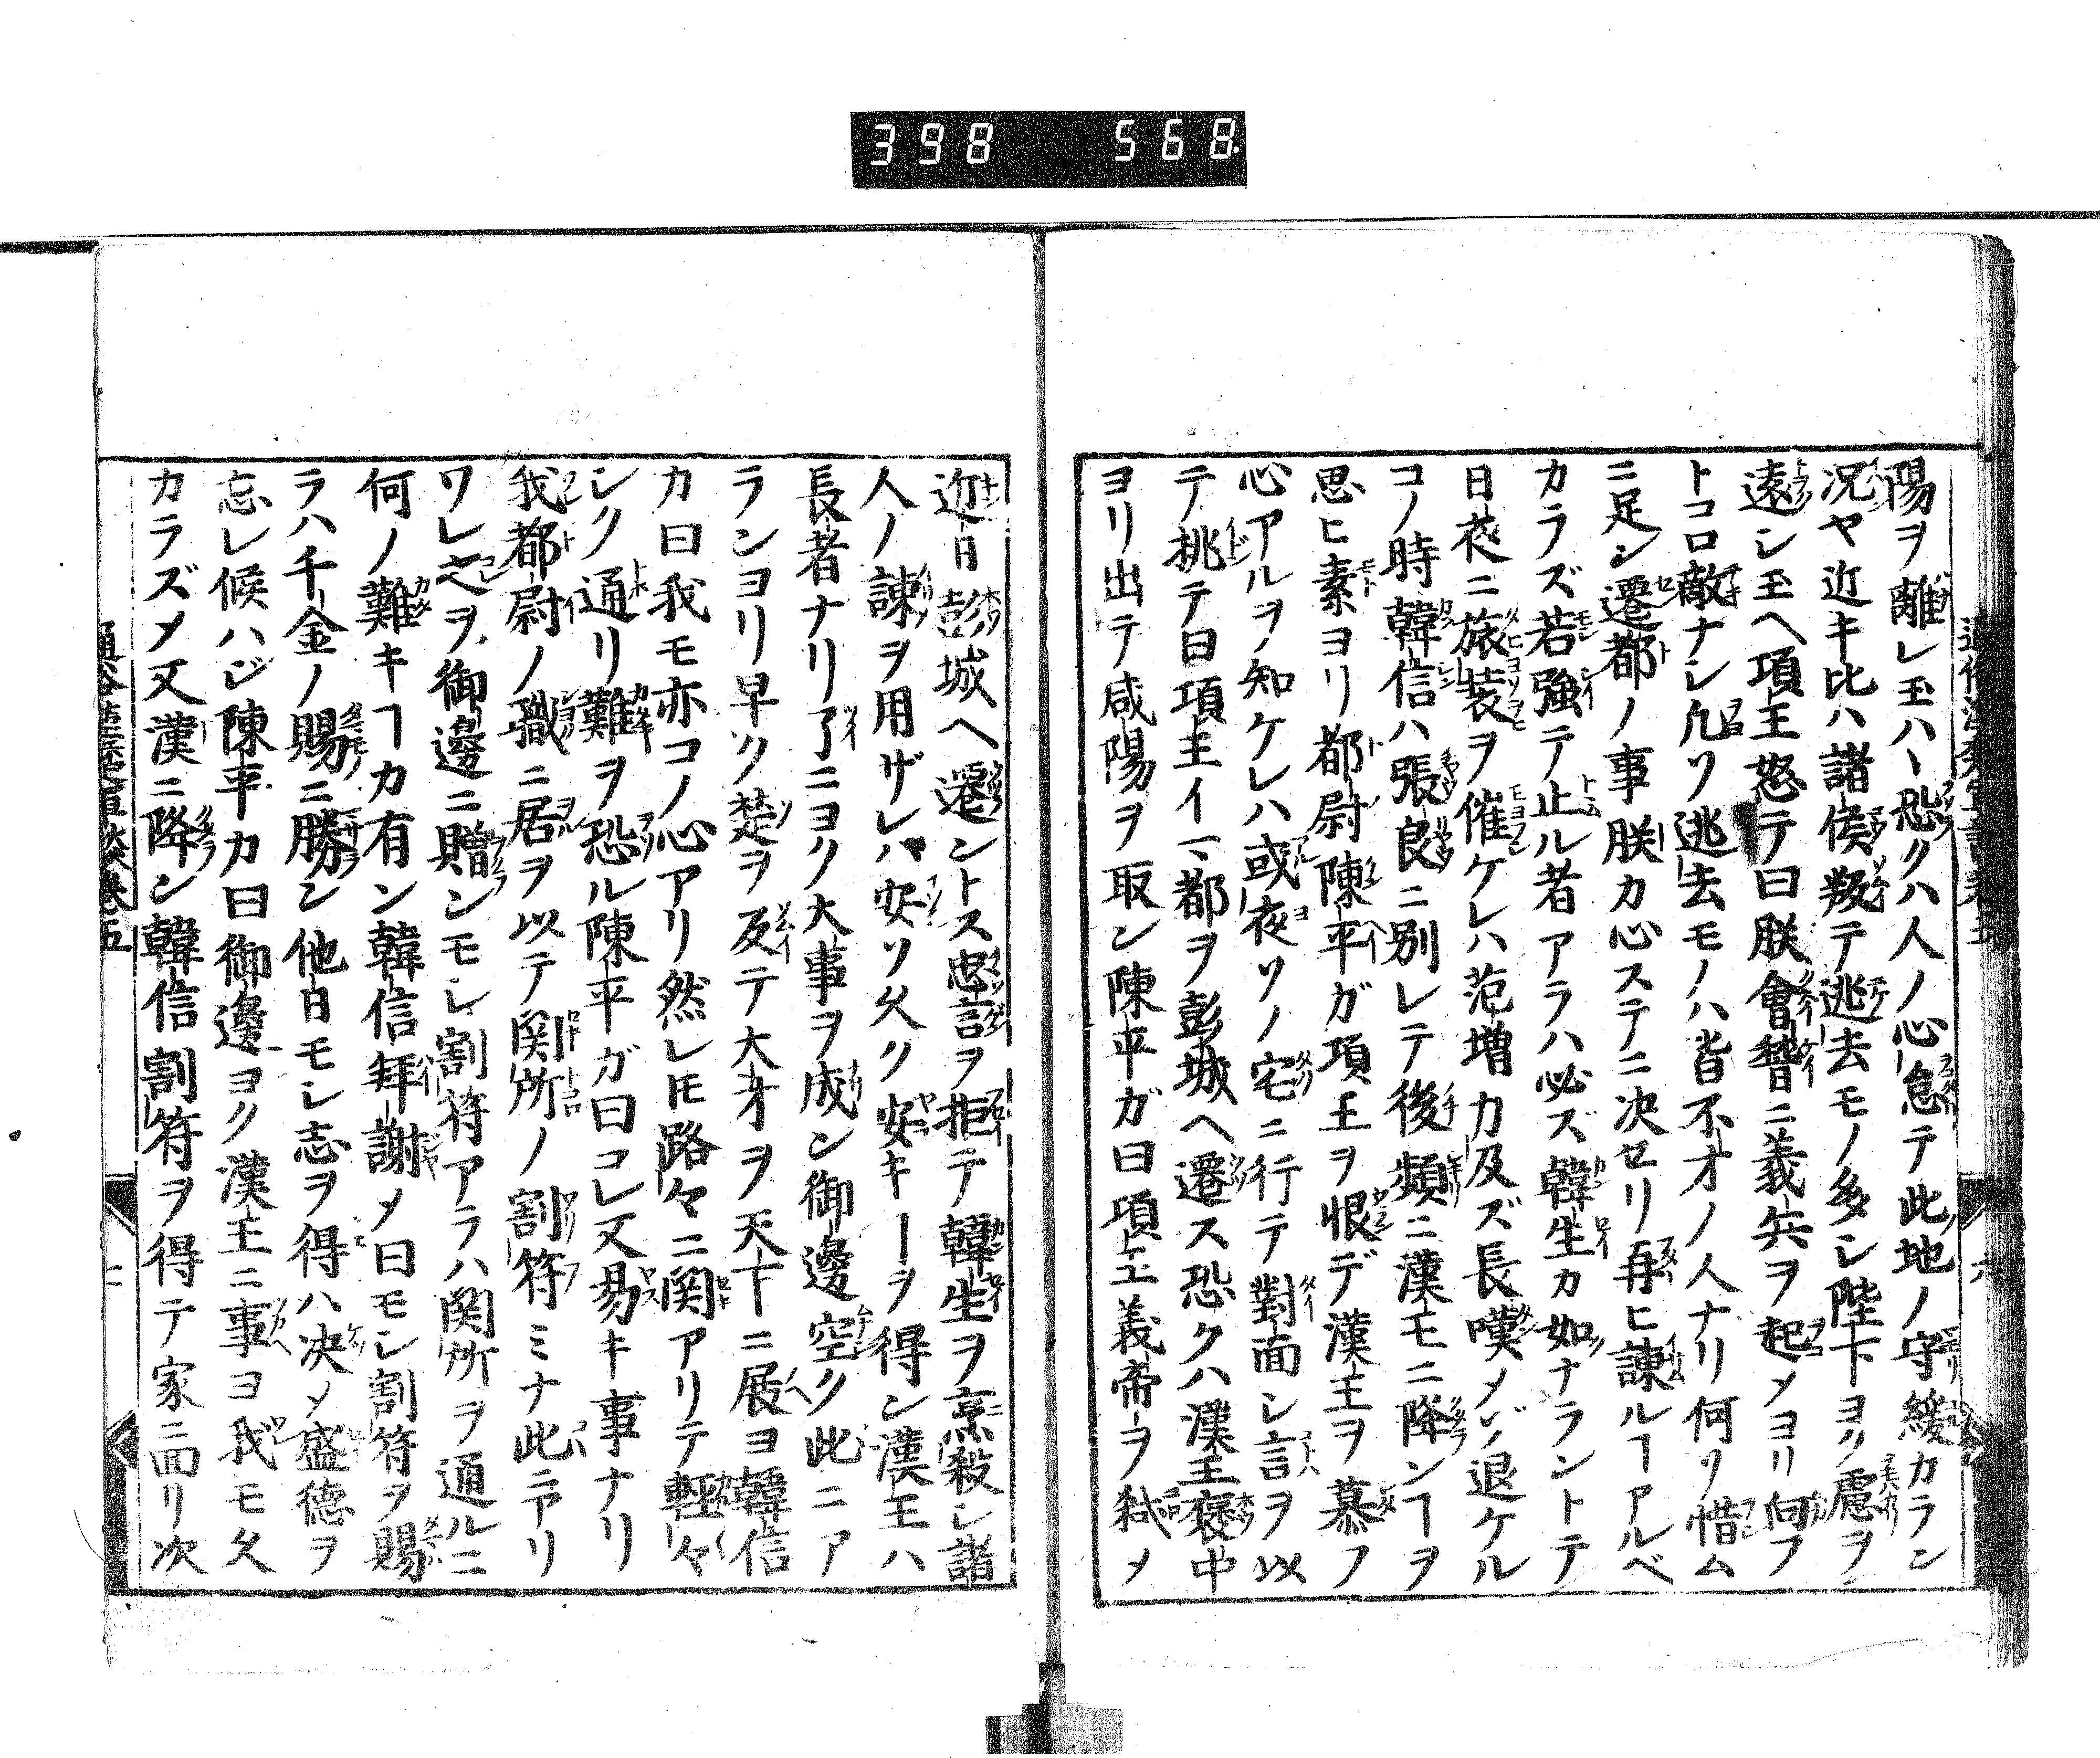 398 568
陽ヲ離レ玉ハヽ恐クハ人ノ心怠テ此地ノ守緩カラン
況ヤ近キ比ハ諸侯叛テ逃去モノ多シ陛下ヨク慮ヲ
遠シ玉ヘ項王怒テ曰朕會稽ニ義兵ヲ起メヨリ向フ
トコロ敵ナシ凡ソ逃去モノハ皆不才ノ人ナリ何ソ惜ム
ニ足ン遷都ノ事朕カ心ステニ决セリ再ヒ諌ルヿアルベ
カラズ若強テ止ル者アラハ必ズ韓生カ如ナラントテ
日夜ニ旅装ヲ催ケレハ范増力及ズ長嘆メゾ退ケル
コノ時韓信ハ張良ニ別レテ後頻ニ漢王ニ降ンヿヲ
思ヒ素ヨリ都尉陳平ガ項王ヲ恨デ漢王ヲ慕フ
心アルヲ知ケレハ或夜ソノ宅ニ行テ對面シ言ヲ以
テ挑テ曰項王イマ都ヲ彭城ヘ遷ス恐クハ漢王褒中
ヨリ出テ咸陽ヲ取ン陳平ガ曰項王義帝ヲ弑メ
近日彭城ヘ遷ントス忠言ヲ拒テ韓生ヲ烹殺シ諸
人ノ諌ヲ用ザレハ安ソ久ク安キヿヲ得ン漢王ハ
長者ナリ了ニヨク大事ヲ成ン御邊空ク此ニア
ランヨリ早ク楚ヲ反テ大才ヲ天下ニ展ヨ韓信
カ曰我モ亦コノ心アリ然レモ路々ニ関アリテ輕々
シク通リ難ヲ恐ル陳平ガ曰コレ又易キ事ナリ
我都尉ノ職ニ居ヲ以テ関所ノ割符ミナ此ニアリ
ワレ之ヲ御邊ニ贈ンモシ割符アラハ関所ヲ通ルニ
何ノ難キヿカ有ン韓信拜謝メ曰モシ割符ヲ賜
ラハ千金ノ賜ニ勝ン他日モシ志ヲ得ハ决メ盛德ヲ
忘レ候ハジ陳平カ曰御邊ヨク漢王ニ事ヨ我モ久
カラズメ又漢ニ降ン韓信割符ヲ得テ家ニ皈リ次